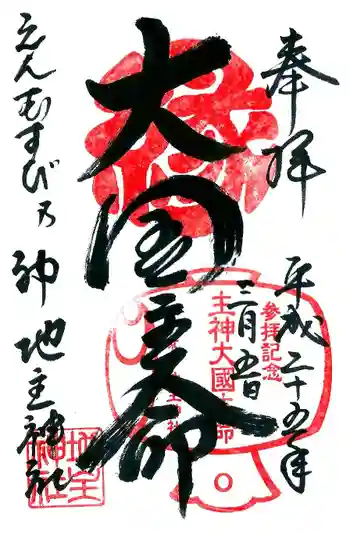 奉拝
平成二十五年
三月五日
大国主命
えんむすびの神
地主神社
参拝記念
主神大國主命
地主神社